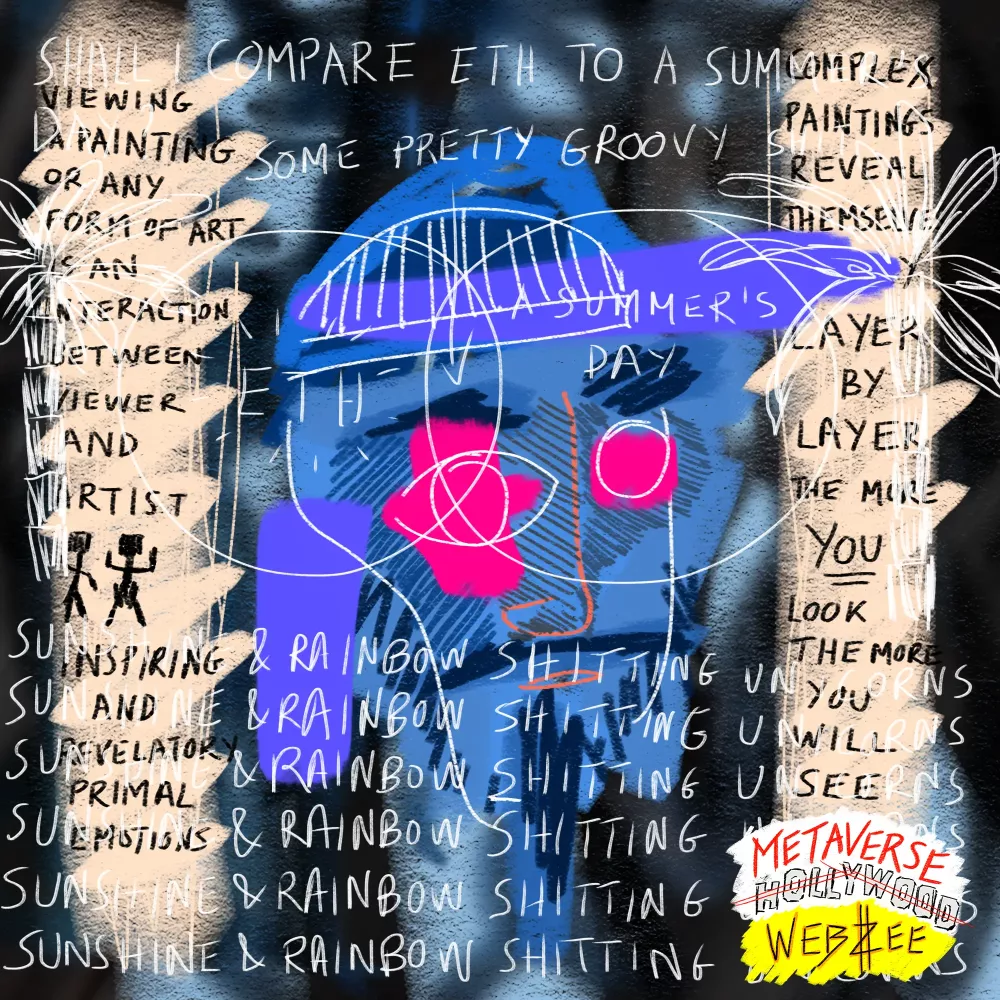 SHALL I COMPARE ETH TO A SUMMER'S
DAY?
SOME PRETTY GROOVY
VIEWING
A PAINTING
OR ANY
FORM OF ART
IS AN
INTERACTION
BETWEEN
VIEWER
AND
ARTIST
INSPIRING
AND
REVELATORY
PRIMAL
EMOTIONS
A SUMMER'S
DAY
ETH
COMPLEX
PAINTINGS
REVEAL
THEMSELVE
Y
LAYER
BY
LAYER
THE MORE
YOU
LOOK
THE MORE
YOU
WILL
SEE
SUNSHINE & RAINBOW SHITTING UNICORNS
SUNSHINE & RAINBOW SHITTING UNICORNS
SUNSHINE & RAINBOW SHITTING UNICORNS
SUNSHINE & RAINBOW SHITTING
SUNSHINE & RAINBOW SHITTING
SUNSHINE & RAINBOW SHITTING
METAVERSE
HOLLYWOOD
WEBZEE